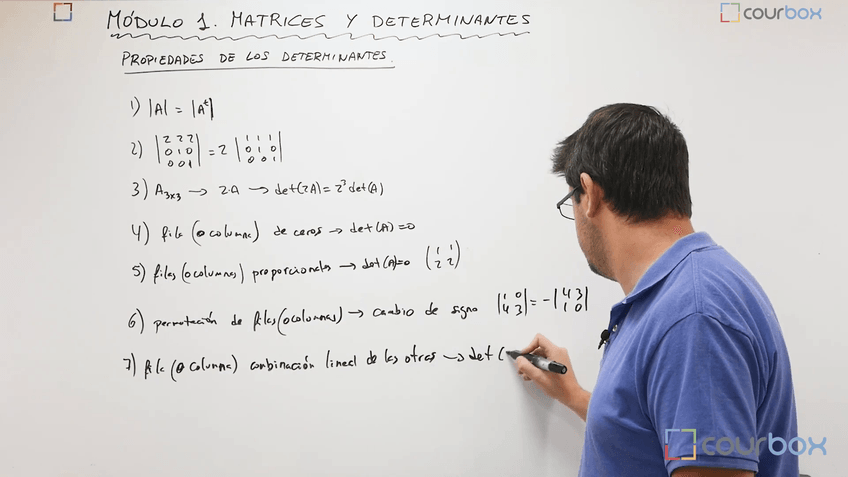 MÓDULO 1. MATRICES Y DETERMINANTES
courbox
PROPIEDADES DE LOS DETERMINANTES.
1) |A| = |Aᵗ|
2) |2 2 2; 0 1 0; 0 0 1| = 2 |1 1 1; 0 1 0; 0 0 1|
3) A₃ₓ₃ → 2·A → det(2A) = 2³ det(A)
4) fila (o columna) de ceros → det(A) = 0
5) filas (o columnas) proporcionales → det(A)=0 (1 1; 2 2)
6) permutación de filas (o columnas) → cambio de signo |1 0; 4 3| = -|4 3; 1 0|
7) fila (o columna) combinación lineal de las otras → det (
courbox